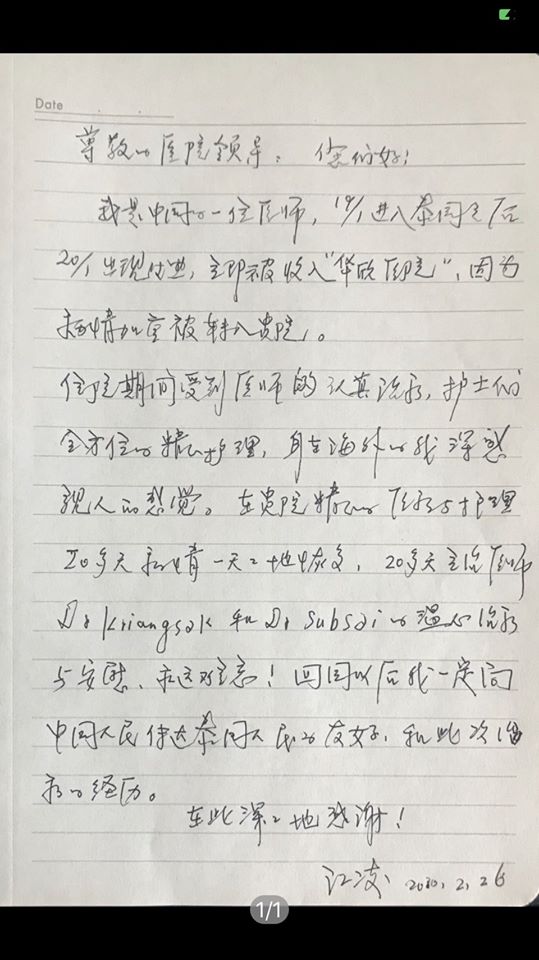 Date
尊敬的医院领导：您们好！
我是中国的一位医师，19/1进入泰国之后
20/1出现付泻，立即被收入“华欣医院”，因为
病情加重被转入贵院。
住院期间受到医师的认真治疗，护士们
全方位的精心护理，身在海外的我深感
亲人的感觉。在贵院精心的医疗与护理
20多天病情一天天地恢复，20多天主治医师
Dr Kriangsak 和 Dr Subsai 的温心治疗
与安慰、永远难忘！回国以后我一定向
中国人民传达泰国人民的友好，和此次治
疗的经历。
在此深深地感谢！
江凌 2020.2.26
1/1